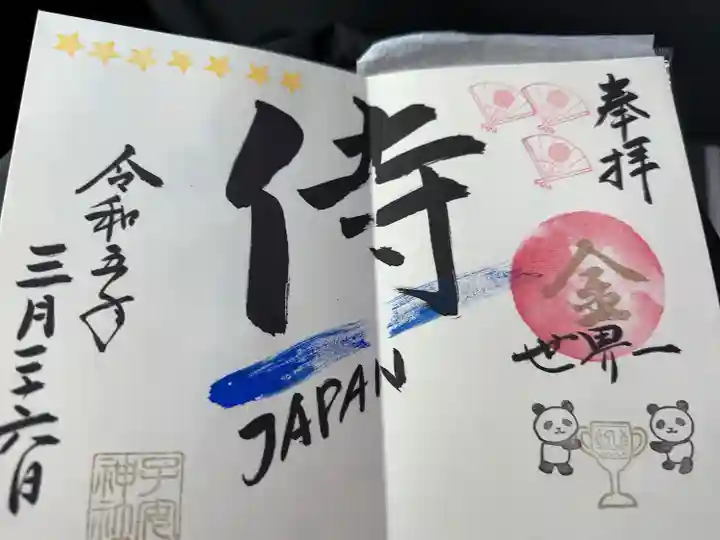 奉拝
金
世界一
侍
JAPAN
令和五年
三月二十六日
子安
神社